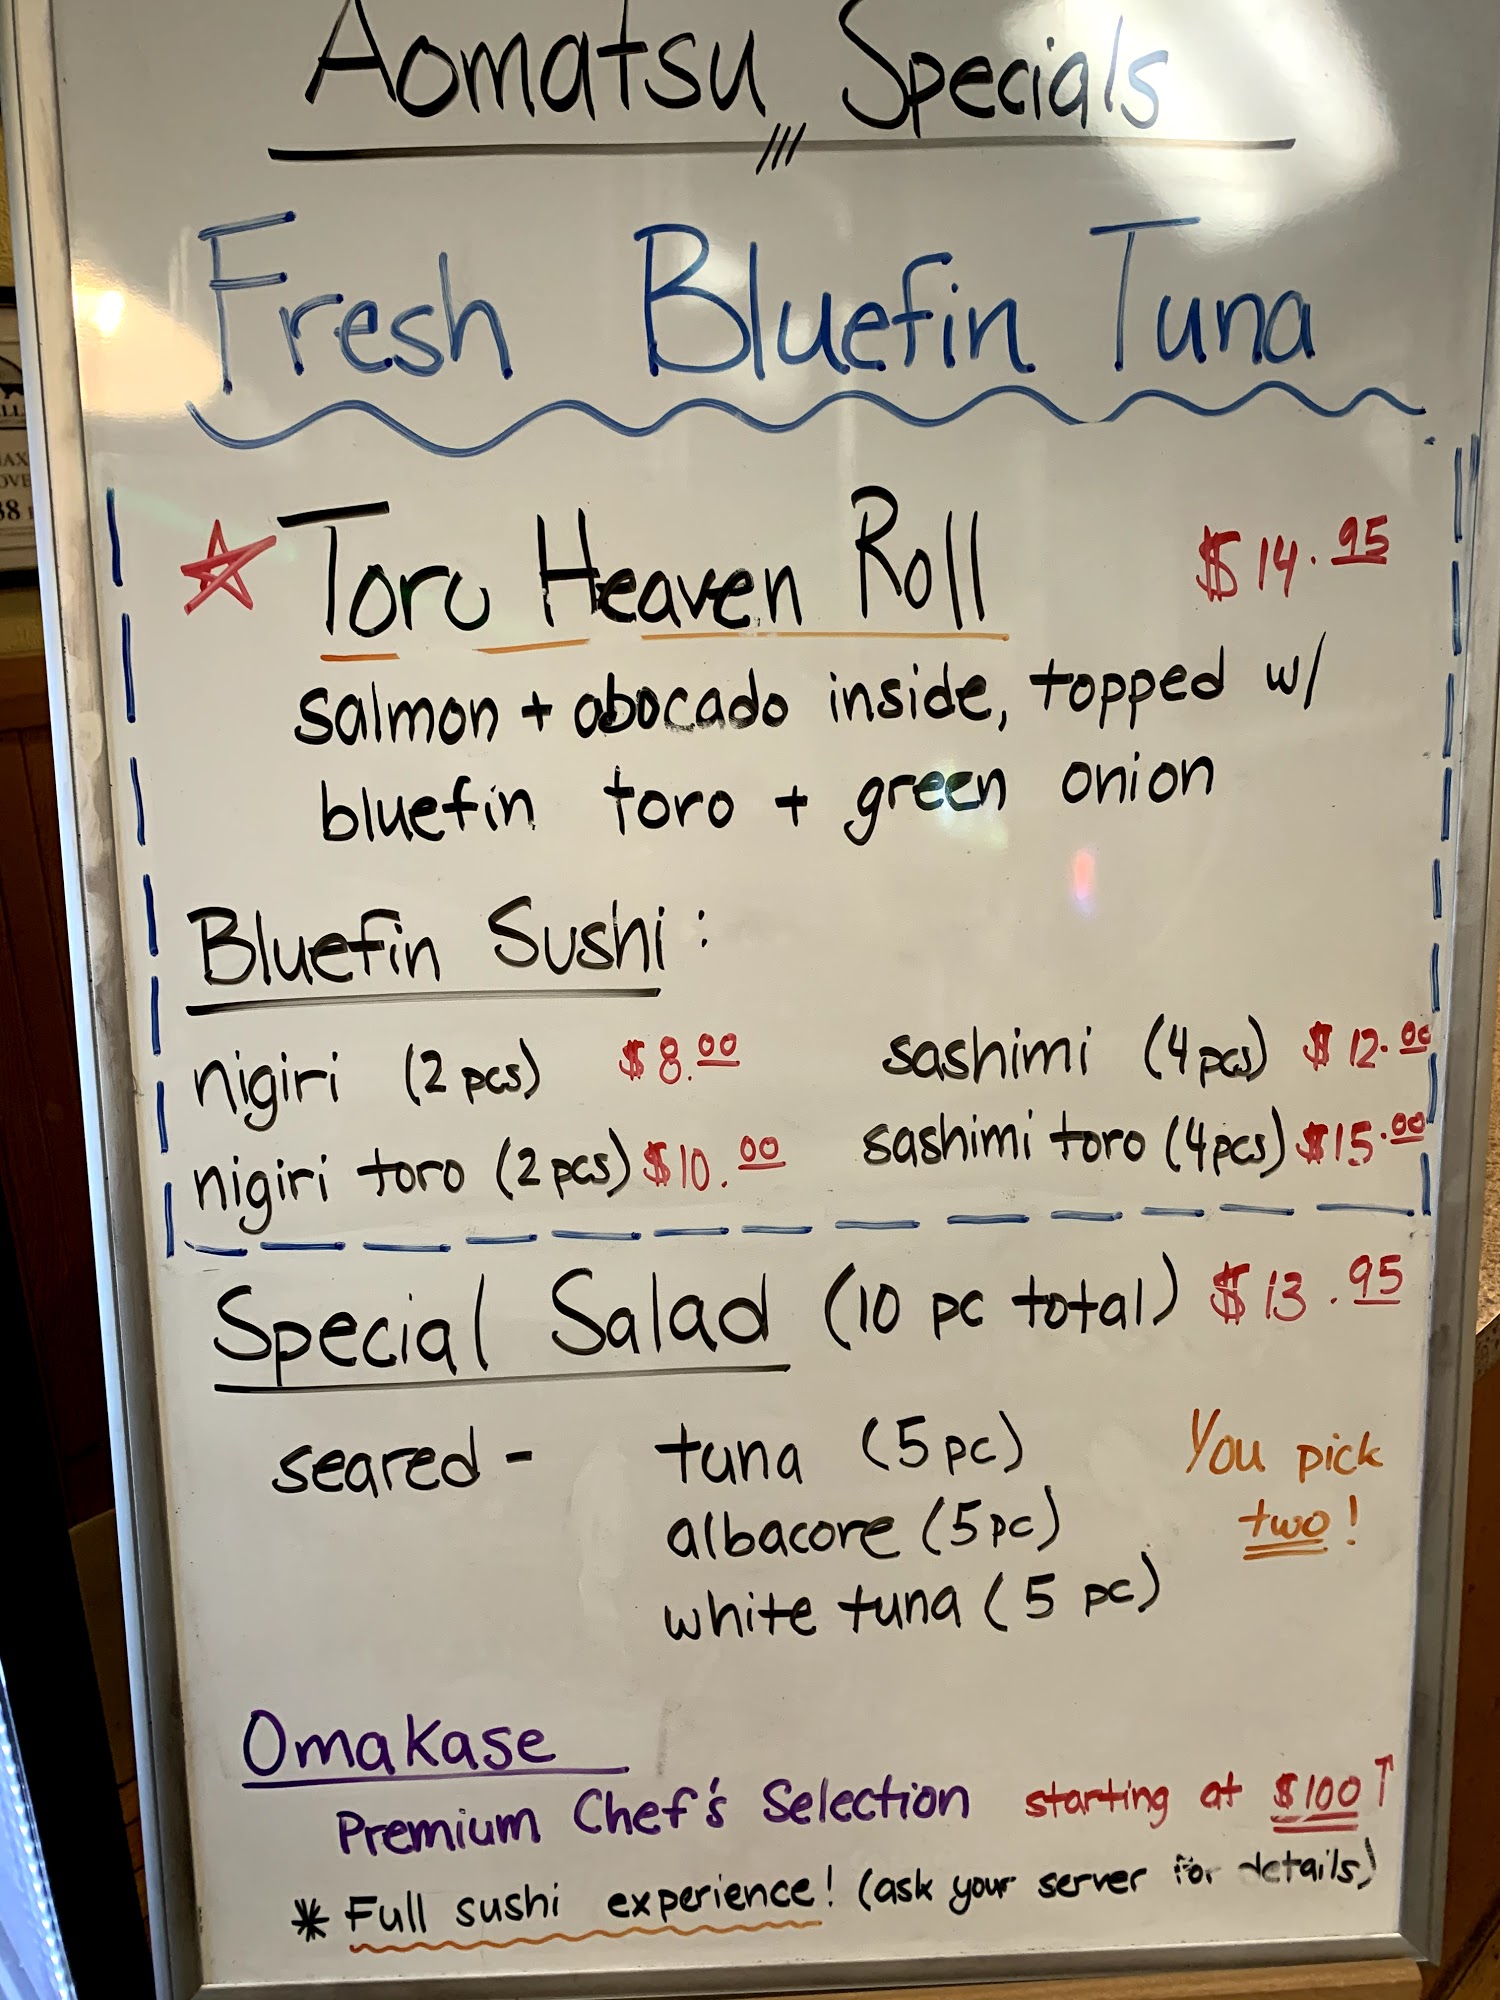 Aomatsu Specials
Fresh Bluefin Tuna
Toro Heaven Roll $14.95
salmon + abocado inside, topped w/
bluefin toro + green onion
Bluefin Sushi:
nigiri (2 pcs) $8.00 sashimi (4 pcs) $12.00
nigiri toro (2 pcs) $10.00 sashimi toro (4 pcs) $15.00
Special Salad (10 pc total) $13.95
seared - tuna (5 pc) You pick
albacore (5 pc) two!
white tuna (5 pc)
Omakase
Premium Chef's Selection starting at $100↑
* Full sushi experience! (ask your server for details)